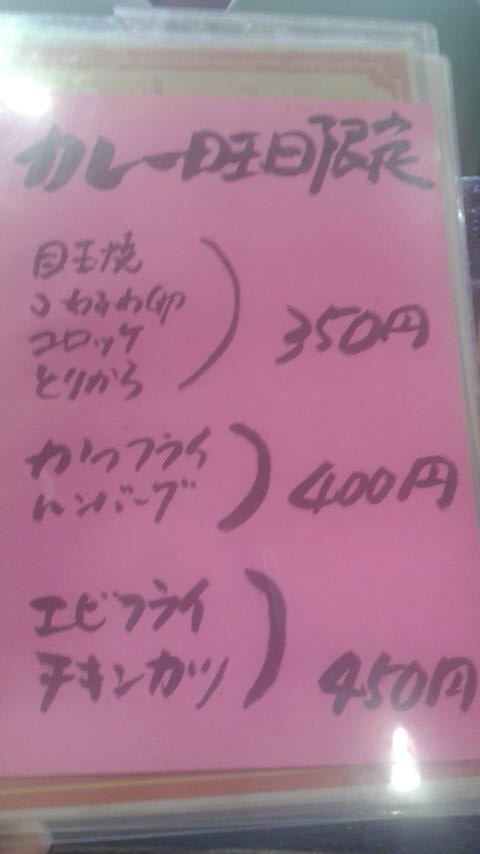 カレー曜日限定
目玉焼
ふわふわ卵
コロッケ
とりから
350円
カツフライ
ハンバーグ
400円
エビフライ
チキンカツ
450円